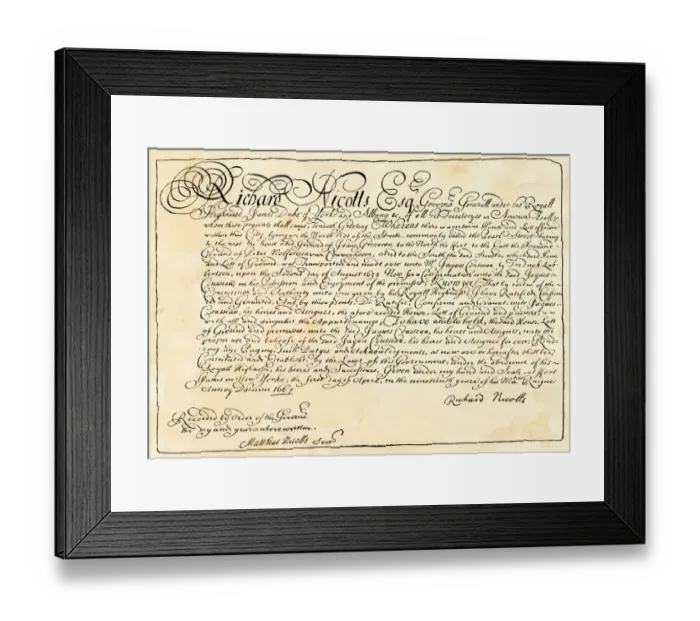 Richard Nicolls Esqr Governr Generall under his Royall
Highness James Duke of Yorke and Albany &c of all his Territoryes in America To all to
whom these presents shall come, sendeth Greeting Whereas there is a certaine House and Lott of Ground
within this City, lying on the North side of the Streete commonly called the Pearl Street
to the East the
Ground of Peter Wolfersen van Couwenhoven, and to the South the said Streete, which said House
and Lott of Ground was Transported and made over unto Mr Jaques Cousseau by Fredrick Lub-
bertsen, upon the Second day of August 1658 Now for a Confirmation unto the said Jaques
Cousseau in his Possession and Enjoyment of the premisses; Know yee That by vertue of the
Commission and Authority unto mee given by his Royall Highness, I have Ratified, Confirm-
ed and Granted, And by these presents, Do Ratifie, Confirme and Graunt, unto Jaques
Cousseau, his heires and Assignes, the afore recited House, Lott of Ground and premisses,
with all and singular the Appurtenances, To have and to hold, the said House, Lott
of Ground and premisses unto the said Jaques Cousseau, his heires and Assignes, unto the
proper use and behoofe of the said Jaques Cousseau, his heires and Assignes for ever, Rend-
ring and Paying, such Dutyes and Acknowledgments, as now are or hereafter shall be
Constituted and Establisht by the Lawes of this Government, under the obedience of his
Royall Highness, his heires and Successours, Given under my hand and Seale, at Fort
James in New Yorke, the first day of Aprl, in the nineteenth yeare of his Maties Raigne
Annoq Domini 1667
Richard Nicolls
Recorded by Order of the Governr
the day and yeare above written.
Matthias Nicolls Secr